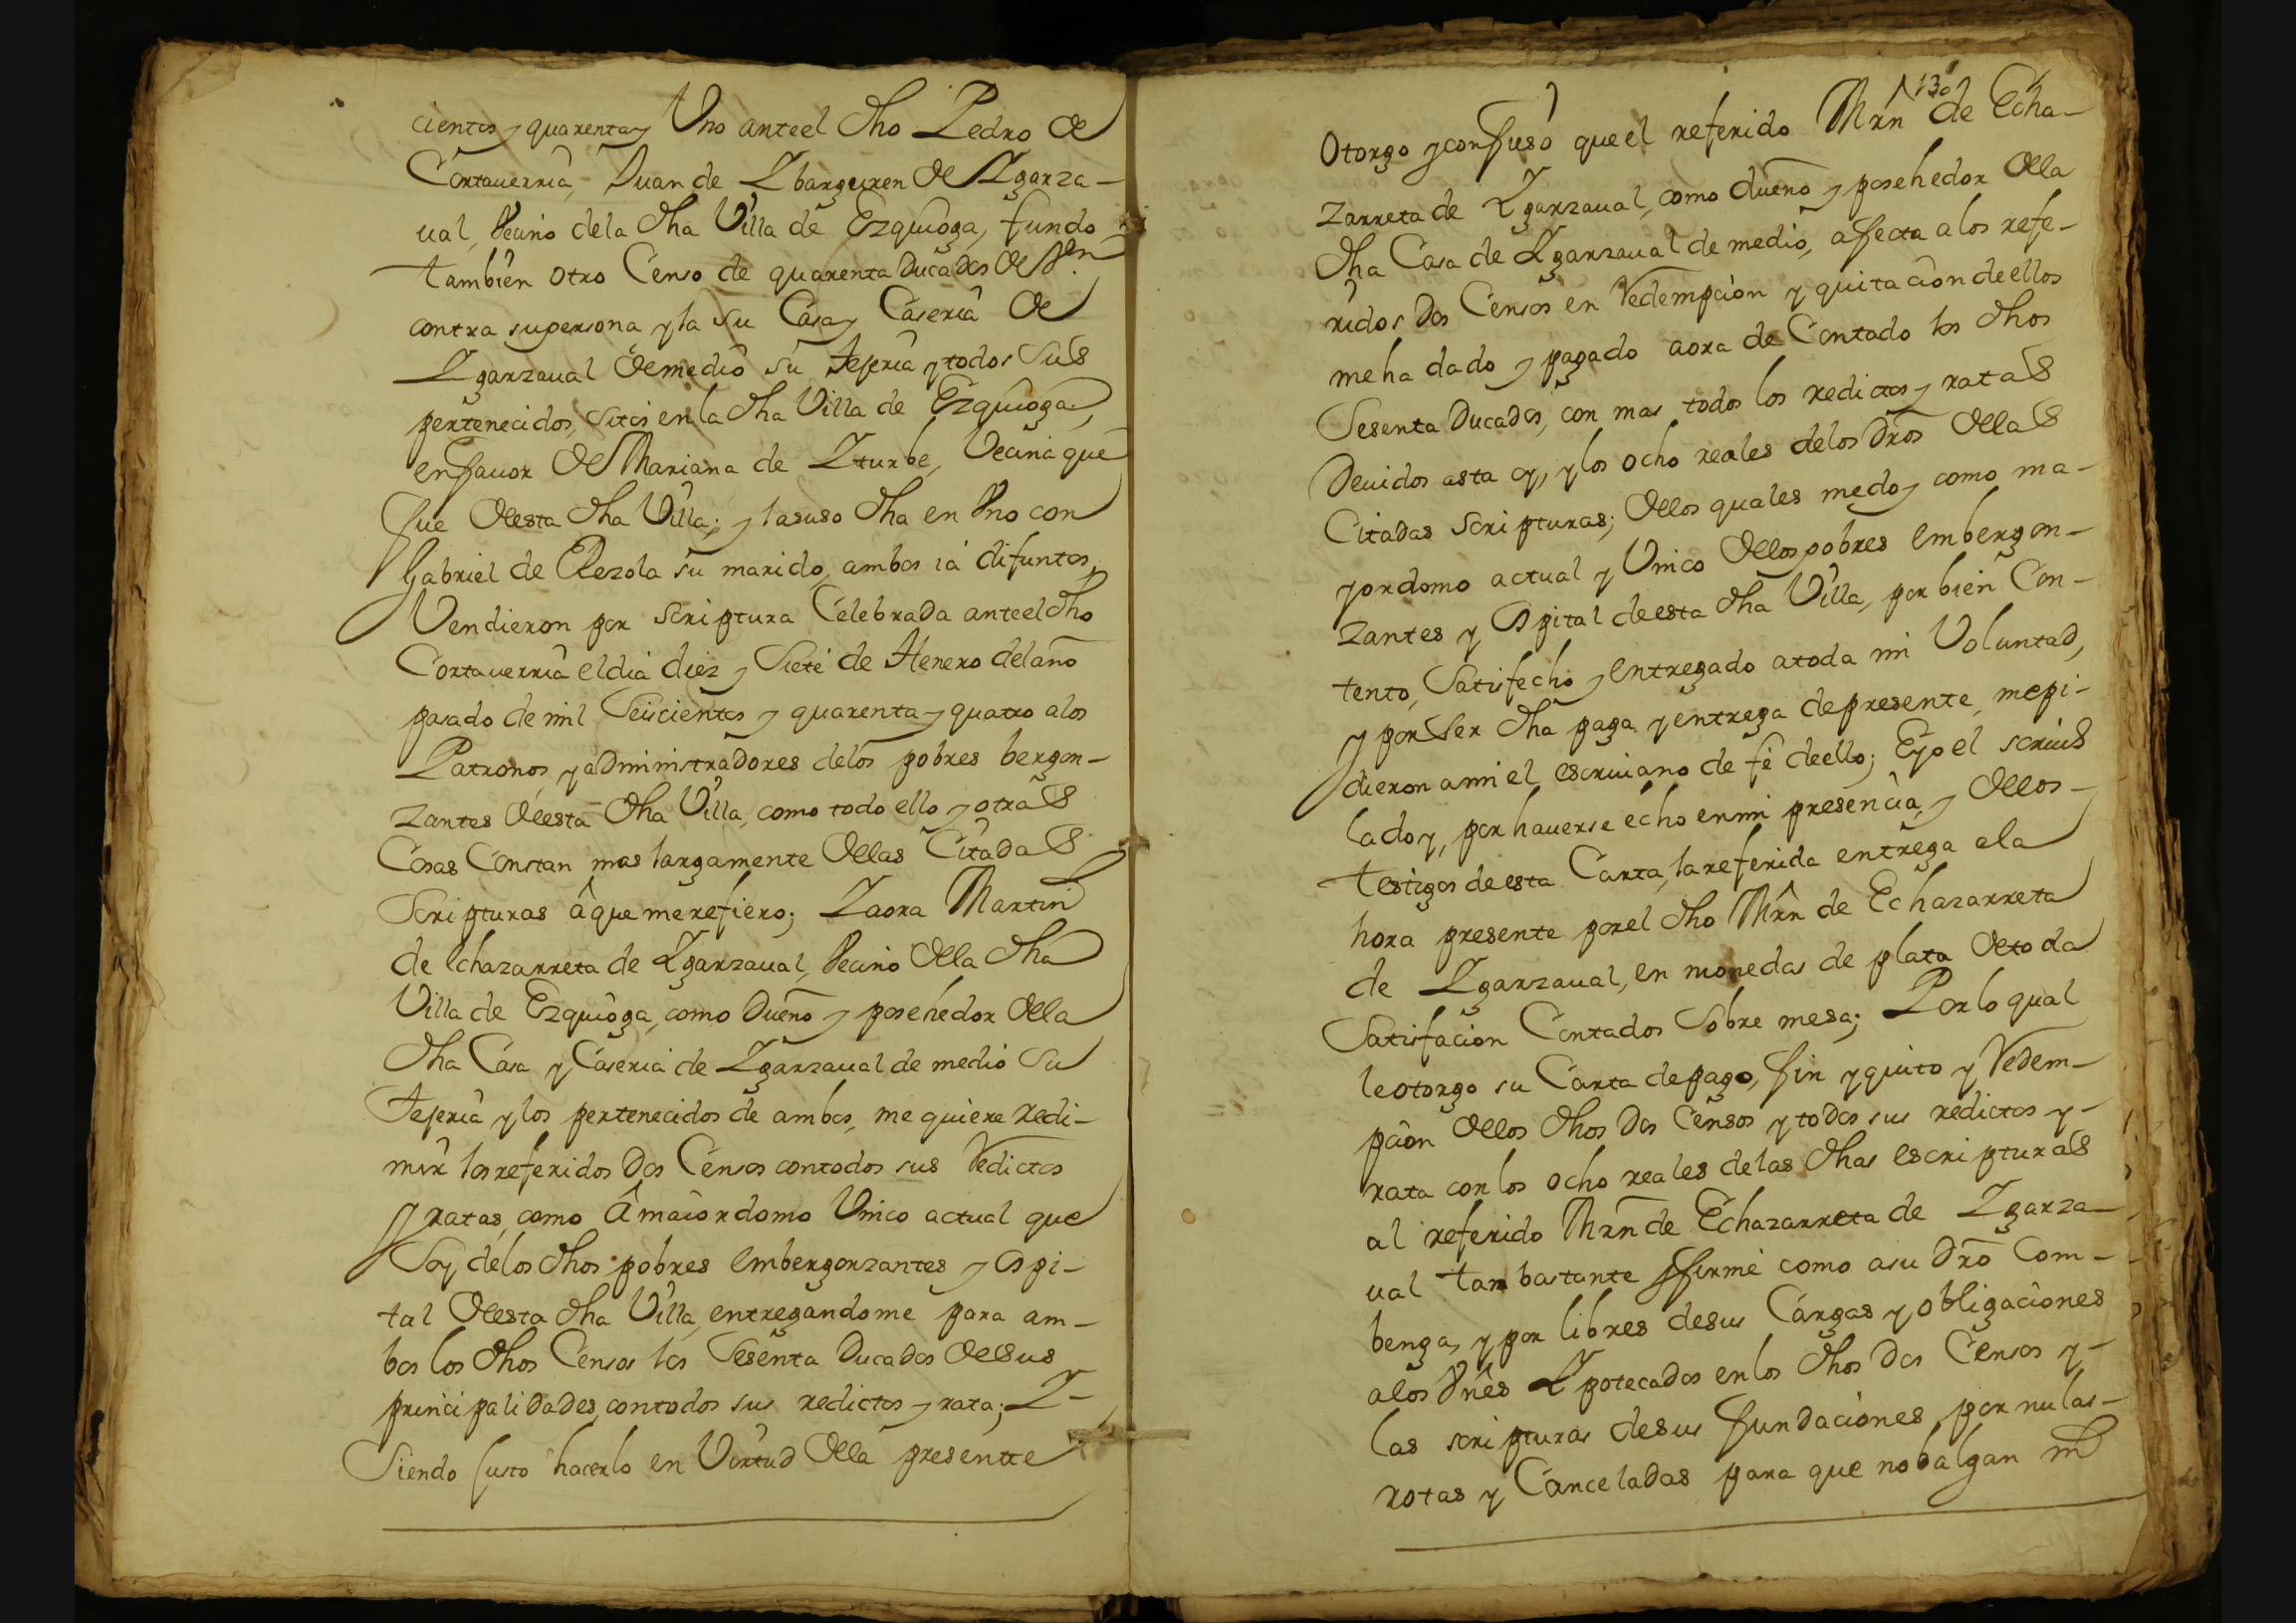 cientos y quarenta y Uno ante el dho Pedro de
Cortauerria, Juan de Ybarguren de Ygarza-
ual, Vecino dela dha Villa de Ezquioga, fundo
tambien otro Censo de quarenta Ducados de Von
contra supersona y la su Casa y Caseria de
Ygarzaual de medio su tejeria y todos sus
pertenecidos, sitos en la dha Villa de Ezquioga,
en fauor de Mariana de Yturbe, Vecina que
fue de esta dha Villa; y la suso dha en Vno con
Gabriel de Rezola su marido, ambos ia difuntos,
Vendieron por scriptura Celebrada ante el dho
Cortauerria el dia diez y Siete de Henero del año
pasado de mil Seiscientos y quarenta y quatro a los
Patronos y administradores delos pobres bergon-
zantes de esta dha Villa, como todo ello y otras
Cosas Constan mas largamente dellas Citadas
Scripturas â que me refiero; Y aora Martin
de Echazarreta de Ygarzaual, Vecino della dha
Villa de Ezquioga, como Dueño y posehedor della
dha Casa y Caseria de Ygarzaual de medio su
tejeria y los pertenecidos de ambos, me quiere redi-
mir los referidos Dos Censos con todos sus Redictos
y ratas, como â maiordomo Vnico actual que
Soy delos dhos pobres embergonzantes y Ospi-
tal de esta dha Villa, entregandome para am-
bos los dhos Censos los Sesenta Ducados de sus
principalidades, con todos sus redictos y rata; Y-
Siendo justo hacerlo en Virtud della presente
130
Otorgo y confieso que el referido Mrn de Echa-
zarreta de Ygarzaual, como dueño y posehedor della
dha Casa de Ygarzaual de medio, afecta a los refe-
ridos Dos Censos en Redempcion y quitacion de ellos
me ha dado y pagado aora de Contado los dhos
Sesenta Ducados, con mas todos los redictos y ratas
Deuidos asta oy, y los ocho reales delos Dros dellas
Citadas Scripturas; dellos quales me doy como ma-
yordomo actual y Vnico dellos pobres embergon-
zantes y Ospital de esta dha Villa, por bien Con-
tento, Satisfecho y entregado atoda mi Voluntad,
y por ser dha paga y entrega de presente, me pi-
dieron a mi el escriuano de fe de ello; E yo el scriuº
la doy, por hauerse echo en mi presencia, y dellos-
testigos de esta Carta, la referida entrega ala
hora presente por el dho Mrn de Echazarreta
de Ygarzaual, en monedas de plata de toda
Satisfacion Contados Sobre mesa; Por lo qual
le otorgo su Carta de pago, fin y quito y Redem-
pcion dellos dhos Dos Censos y todos sus redictos y-
rata con los ocho reales de las dhas escripturas
al referido Mrn de Echazarreta de Ygarza-
ual tan bastante y firme como a su Dro Com-
benga, y por libres de sus Cargas y obligaciones
a los Vnes Ypotecados en los dhos Dos Censos y-
las scripturas de sus fundaciones por nulas-
rotas y Canceladas para que no balgan ni